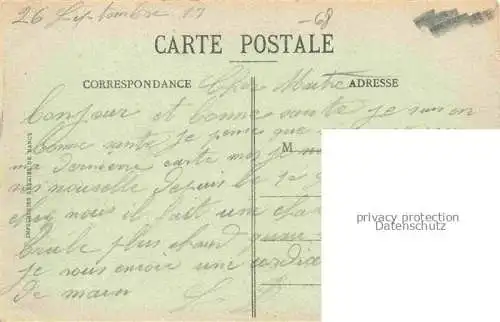 26 Septembre 17
-68
CARTE POSTALE
CORRESPONDANCE
ADRESSE
Cher Maitre
Bonjour et bonne sante je suis en
bonne sante je pense que
M
ma derniere carte mes
nouvelle depuis le
chez nous il fait une
plus chaud
je vous envoie une cordia
de main
IMPRIMERIES REUNIES DE NANCY
privacy protection
Datenschutz